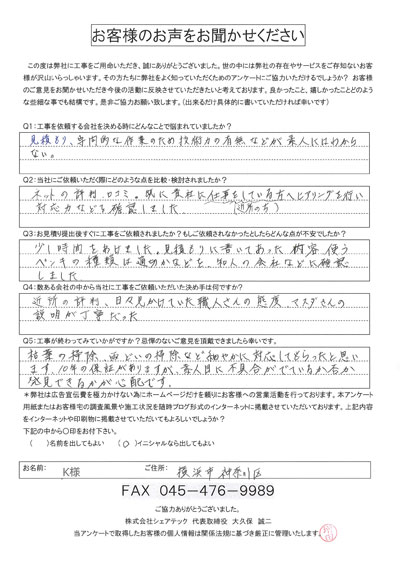 お客様のお声をお聞かせください
この度は弊社に工事をご用命いただき、誠にありがとうございました。世の中には弊社の存在やサービスをご存知ないお客
様が沢山いらっしゃいます。その方たちに弊社をよく知っていただくためのアンケートにご協力いただけるでしょうか? お客様
のご意見をお聞かせいただき今後の活動に反映させていただきたいと考えております。良かったこと、嬉しかったことどのよう
な些細な事でも結構です。是非ご協力お願い致します。(出来るだけ具体的に書いていただければ幸いです)
Q1:工事を依頼する会社を決める時にどんなことで悩まれていましたか?
見積もり、専門的な作業のため技術力の有無などが素人にはわから
ない。
Q2:当社にご依頼いただく際にどのような点を比較・検討されましたか?
ネットの評判、口コミ。既に貴社に仕事をしている方へヒアリングを行い
対応力などを確認しました。(近所の方)
Q3:お見積り提出後すぐにご依頼されましたか?もしご依頼されなかったとしたらどんな点が不安でしたか?
少し時間をあけました。見積もりに書いてあった内容、使う
ペンキの種類は適切かなどを、知人の会社などに確認
しました。
Q4:数ある会社の中から当社に工事をご依頼いただいた決め手は何ですか?
近所の評判、日々見かけていた職人さんの態度、マスダさんの
説明が丁寧だった
Q5:工事が終わってみていかがですか?忌憚のないご意見を頂戴できましたら幸いです。
枯葉の掃除、雨どいの掃除など細やかに対応してもらったと思い
ます。10年の保証がありますが、素人目に不具合がでているか否か
発見できるかが心配です。
*弊社は広告宣伝費を極力かけない為にホームページだけを頼りにお客様への営業活動を行っております。本アンケート
用紙またはお客様宅の調査風景や施工状況を随時ブログ形式のインターネットに掲載させていただいております。上記内容
をインターネットや印刷物に掲載させていただいてもよろしいでしょうか?
下記の中から〇印をお付下さい。
( )名前を出してもよい (〇)イニシャルなら出してもよい
お名前: K様 ご住所: 横浜市神奈川区
FAX 045-476-9989
ご協力ありがとうございました。
株式会社シェアテック 代表取締役 大久保 誠二
当アンケートで取得したお客様の個人情報は関係法規に基づき厳正に管理いたします。